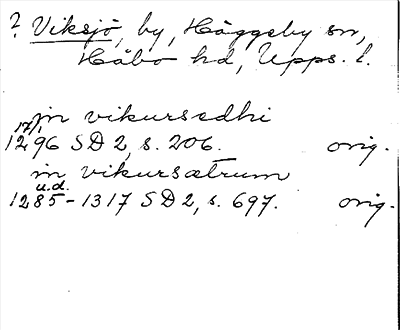 ? Viksjö, by, Häggeby sn,
Håbo hd, Upps. l.
in vikursedhi
17/1
1296 SD 2, s. 206. orig.
in vikursætrum
u.d.
1285-1317 SD 2, s. 697. orig.